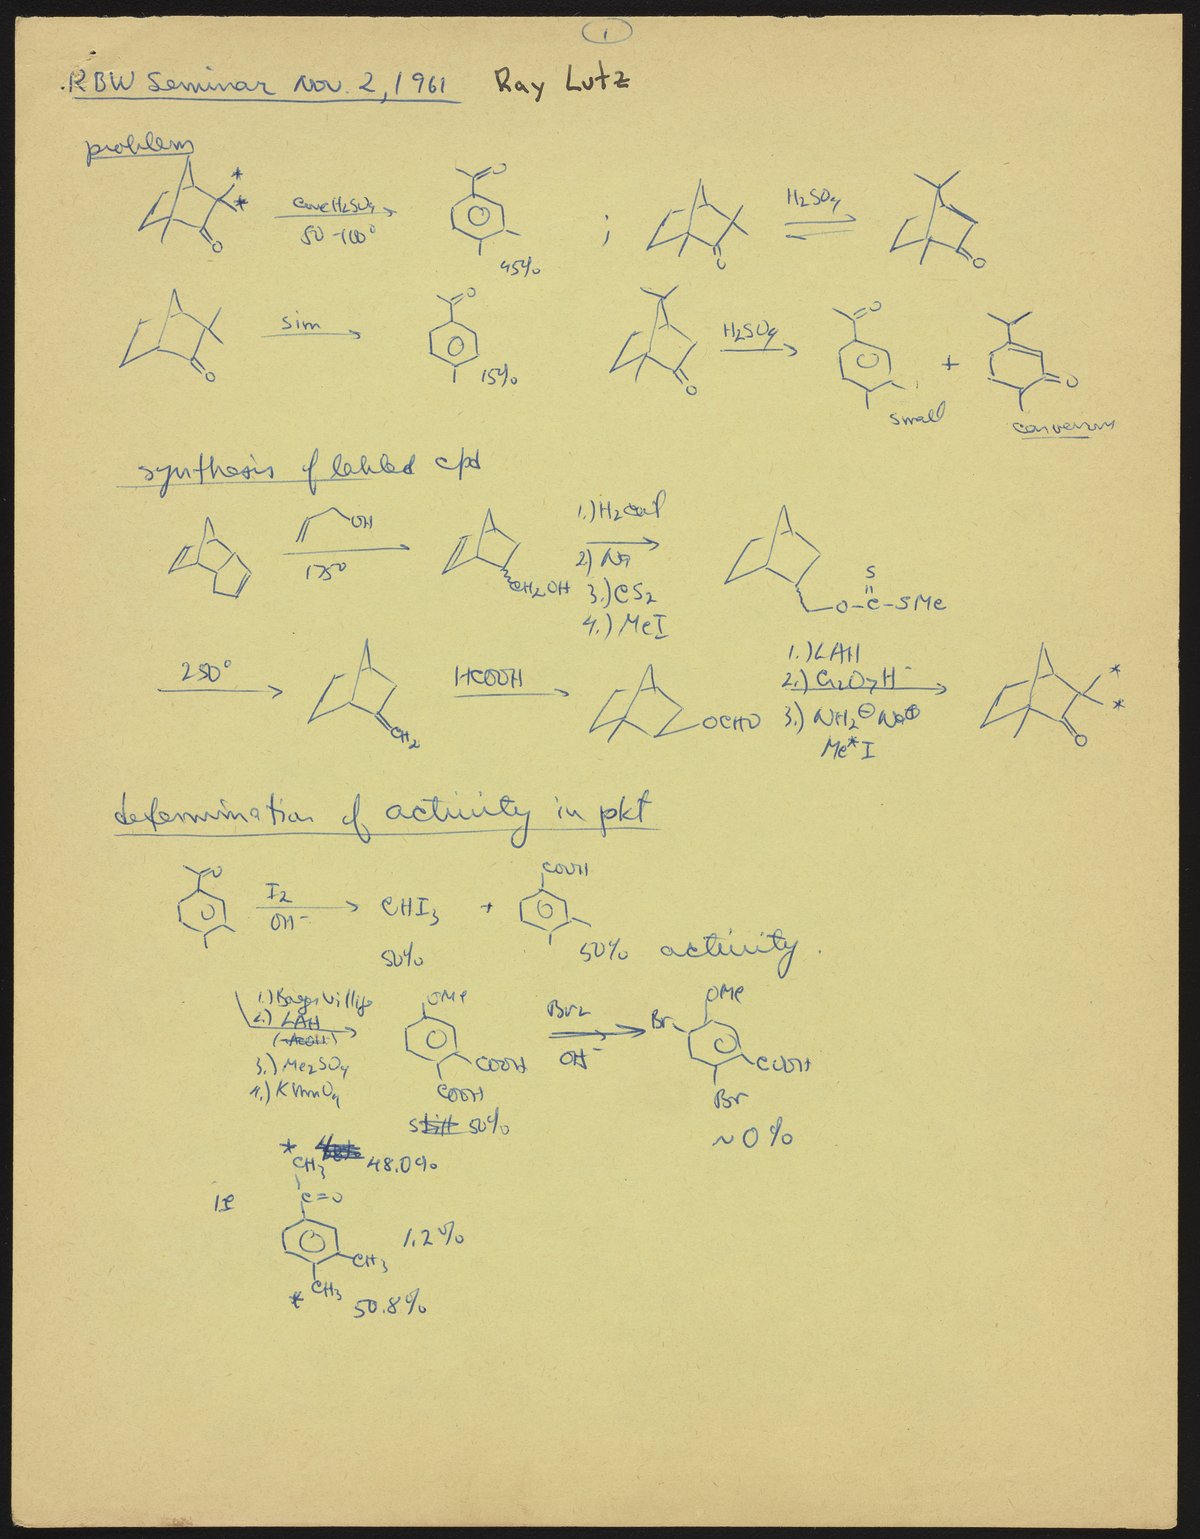 1
RBW Seminar Nov. 2, 1961 Ray Lutz
problem
* * conc H2SO4 50-100° O 45% ; O H2SO4 O
O sim O 15% O H2SO4 O small + O
synthesis of labled cpd
OH 175° CH2OH 1.) H2 cat 2) Na 3.) CS2 4.) MeI O-C-SMe S
250° CH2 HCOOH OCHO 1.) LAH 2.) Cr2O7H- 3.) NH2⊖ Na⊕ Me*I * * O
determination of activity in pkt
O I2 OH- CHI3 + COOH
50% 50% activity.
1.) Baeyer Villige 2.) LAH (AcOH) 3.) Me2SO4 4.) KMnO4 OMe COOH COOH Br2 OH- OMe Br COOH Br
still 50% ~0%
* CH3 48.0%
ie C=O
1.2%
CH3
* CH3 50.8%